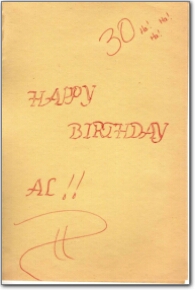 30 ah! ah! ah!
HAPPY
BIRTHDAY
AL!!